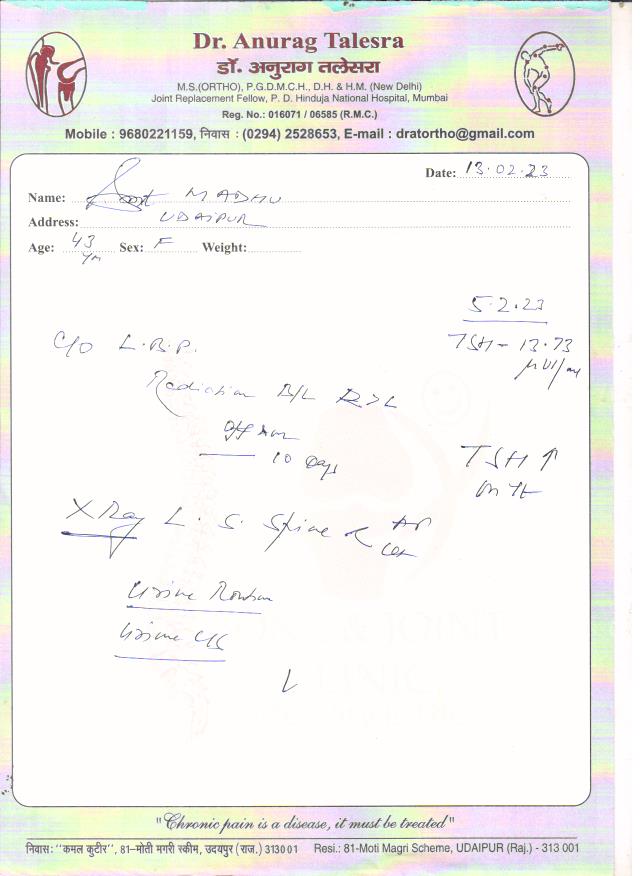 Dr. Anurag Talesra
डॉ. अनुराग तलेसरा
M.S.(ORTHO), P.G.D.M.C.H., D.H. & H.M. (New Delhi)
Joint Replacement Fellow, P. D. Hinduja National Hospital, Mumbai
Reg. No.: 016071 / 06585 (R.M.C.)
Mobile : 9680221159, निवास : (0294) 2528653, E-mail : dratortho@gmail.com
Date: 13.02.23
Name: Smt MADHU
Address: UDAIPUR
Age: 43 Yrs Sex: F Weight:
5.2.23
C/O L.B.P.
TSH - 13.73
μUI/ml
Radiation B/L R>L
10 Days
TSH ↑
X Ray L. S. Spine AP
Lat
Urine Routine
Urine C/S
BONE & JOINT
CLINIC
"Chronic pain is a disease, it must be treated"
निवास: "कमल कुटीर", 81-मोती मगरी स्कीम, उदयपुर (राज.) 313001 Resi.: 81-Moti Magri Scheme, UDAIPUR (Raj.) - 313 001